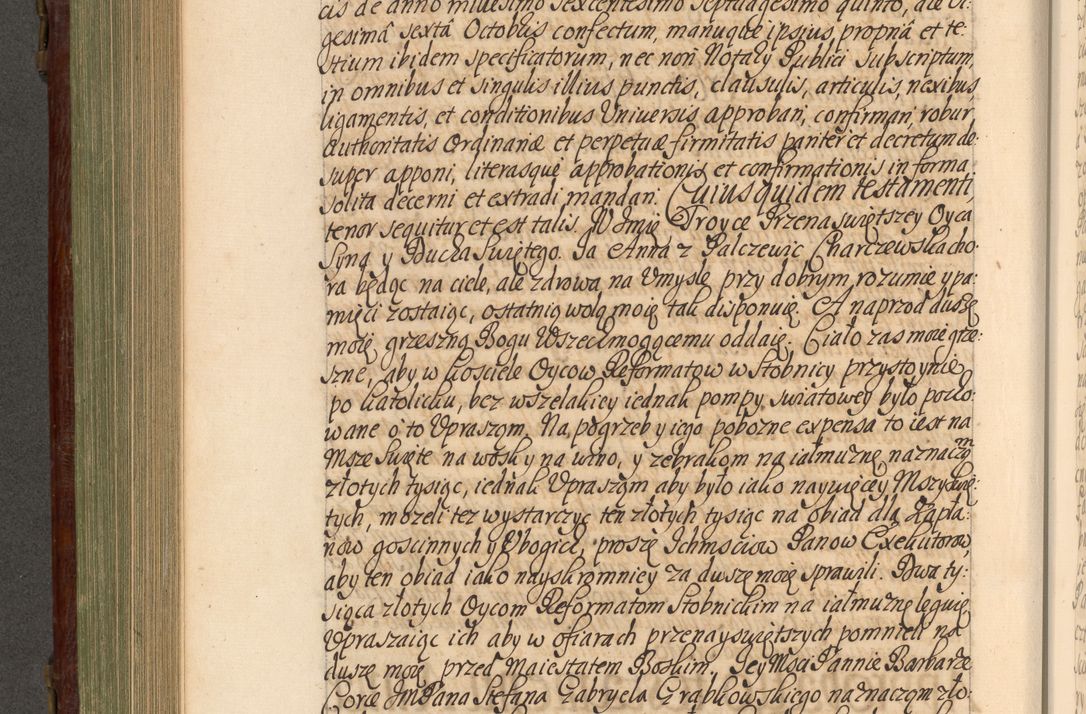 cis de anno millesimo sexcentesimo septuagesimo quinto, die vi-
gesimâ sextâ Octobris confectum, manuque ipsius propriâ et te-
stium ibidem specificatorum, nec non Notarÿ Publici subscriptum,
in omnibus et singulis illius punctis, clausulis, articulis, nexibus,
ligamentis, et conditionibus Universis approbari, confirmari, robur
Authoritatis Ordinariæ et perpetuæ firmitatis pariter et decretum de-
super apponi, literasque approbationis et confirmationis in forma
solita decerni et extradi mandari. Cuius quidem testamenti,
tenor sequitur et est talis. W Imię Troyce Przenaswiętszey Oyca
Syna y Ducha Swiętego. Ja Anna z Palczewic Charczewska cho-
ra będąc na ciele, ale zdrowa na Umysle przy dobrym rozumie y pa-
mięci zostaiąc, ostatnią wolą moię tak disponuię. A naprzod duszę
moię grzeszną Bogu Wszechmogącemu oddaię. Ciało zas moie grze-
szne, aby w kosciele Oycow Reformatow w Stobnicy przystoynie
po katolicku, bez wszelakiey iednak pompy swiatowey było pocho-
wane o to Upraszam. Na pogrzeb y iego pobozne expensa to iest na
Msze Swięte na woski y na wino, y zebrakom na iałmuznę naznaczam
złotych tysiąc, iednak Upraszam aby było iako naywięcey Mszy swię-
tych, mozeli tez wystarczyc ten złotych tysiąc na obiad dla Kapła-
now goscinnych y Ubogich, proszę Ichmsciow Panow Exekutorow,
aby ten obiad iako nayskromniey za duszę moię sprawili. Dwa ty-
siąca złotych Oycom Reformatom Stobnickim na iałmuznę leguię
Upraszaiąc ich aby w ofiarach przenayswiętszych pomnieli na
duszę moię przed Maiestatem Boskim. Jey Msci Pannie Barbarze
Corce JmPana Stefana Gabryela Grabkowskiego naznaczam zło-